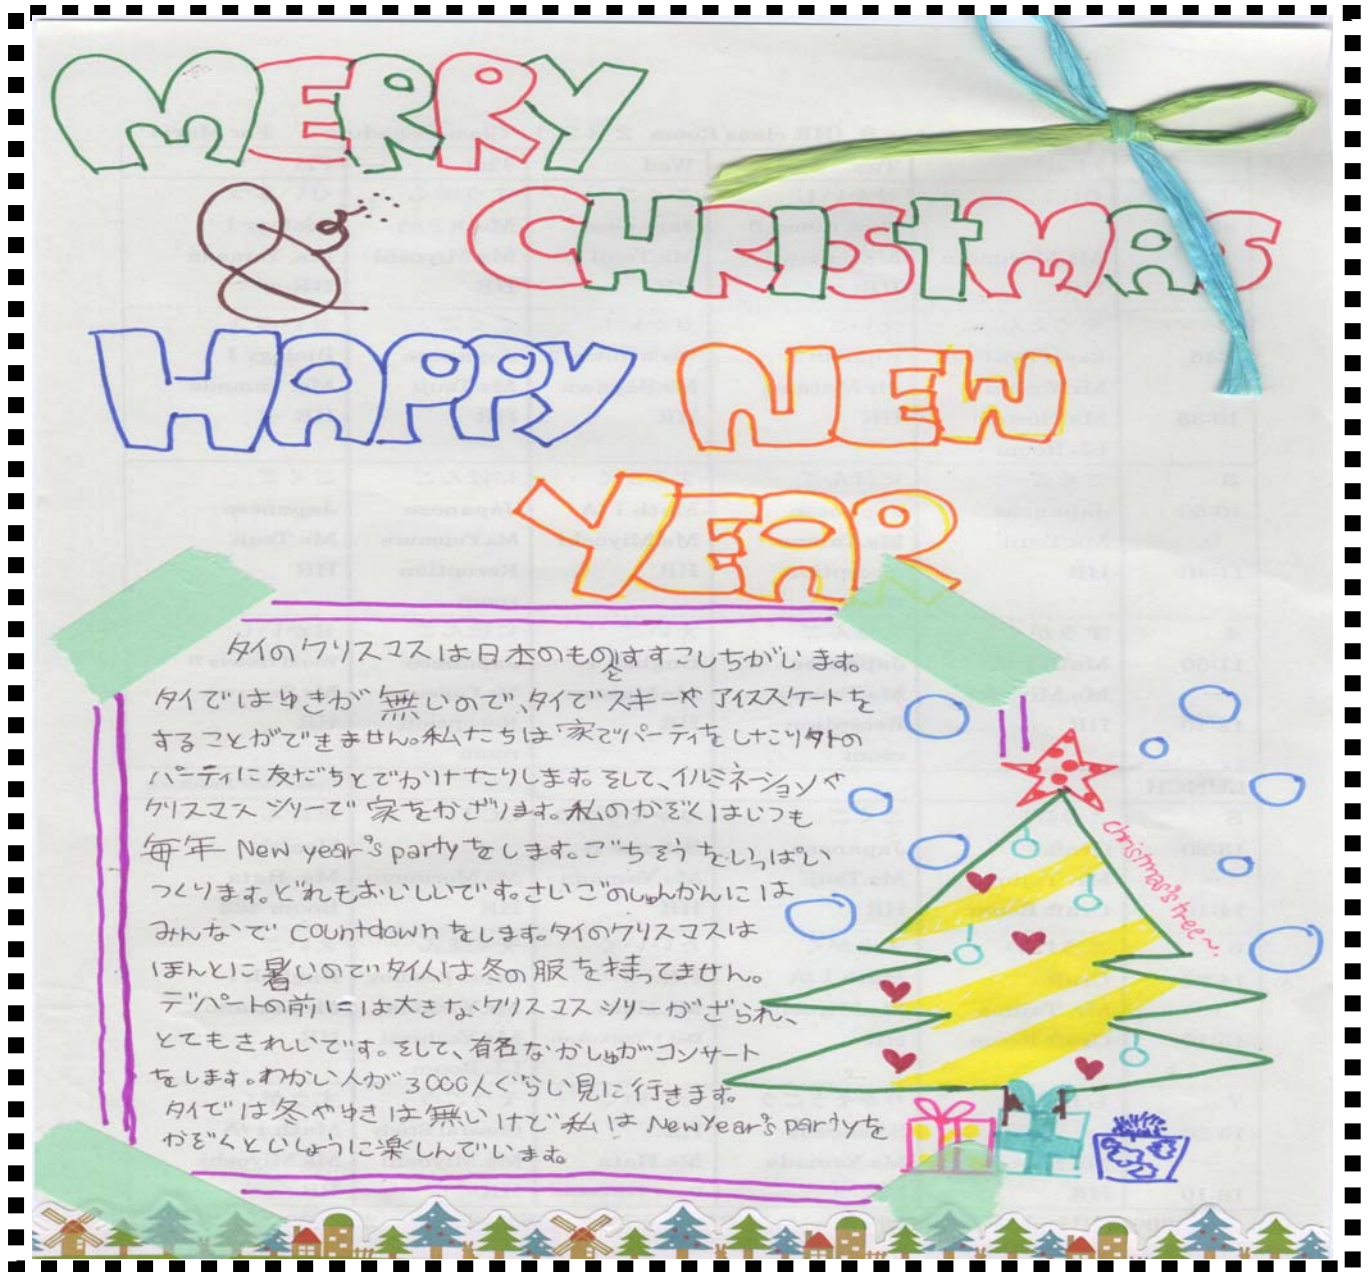 MERRY
& CHRISTMAS
HAPPY NEW
YEAR
タイのクリスマスは日本のものとはすこしちがいます。
タイではゆきが無いので、タイでスキーやアイススケートを
することができません。私たちは家でパーティをしたり外の
パーティに友だちとでかけたりします。そして、イルミネーションや
クリスマスツリーで家をかざります。私のかぞくはいつも
毎年 New year's partyをします。ごちそうをいっぱい
つくります。どれもおいしいです。さいごのしゅんかんには
みんなで countdownをします。タイのクリスマスは
ほんとに暑いのでタイ人は冬の服を持ってません。
デパートの前には大きなクリスマスツリーがざられ、
とてもきれいです。そして、有名なかしゅがコンサート
をします。わかい人が3000人ぐらい見に行きます。
タイでは冬やゆきは無いけど私はNew Year's partyを
かぞくといしょうに楽しんでいます。
christmas tree~